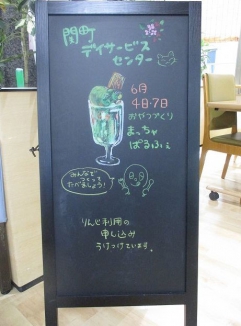 関町
デイサービス
センター
6月
4日・7日
おやつづくり
まっちゃ
ぱるふぇ
みんなで
つくって
たべましょう!
りんじ利用の
申し込み
うけつけています。